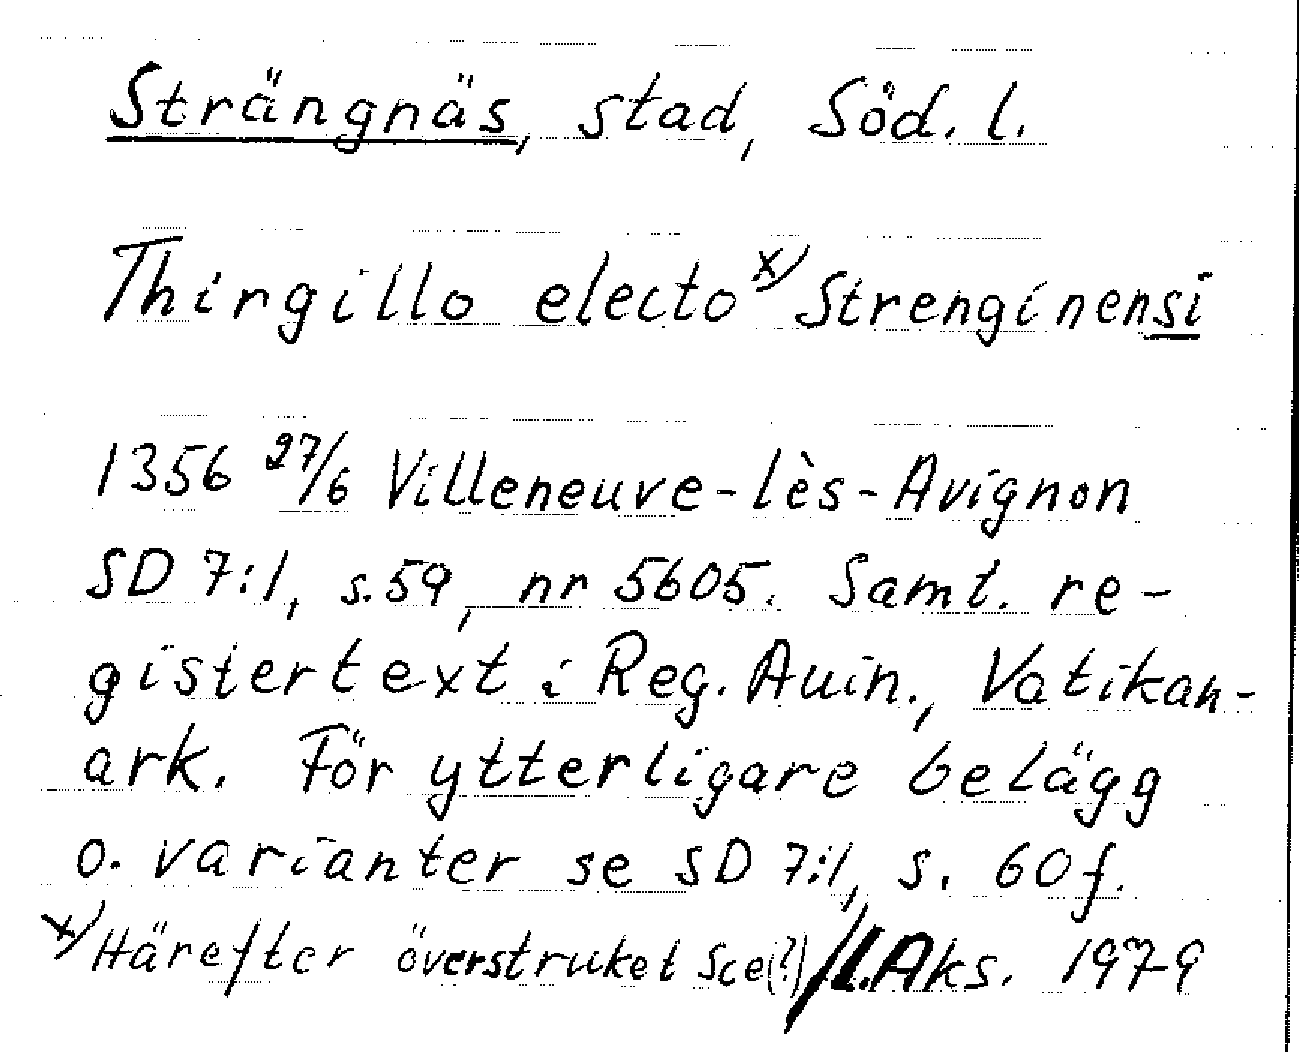 Strängnäs, stad, Söd. l.
Thirgillo electo x) Strenginensi
1356 27/6 Villeneuve-lès-Avignon
SD 7:1, s. 59, nr 5605. Samt. re-
gistertext i Reg. Auin., Vatikan-
ark. För ytterligare belägg
o. varianter se SD 7:1, s. 60 f.
x) Härefter överstruket Sce(?) / l. Aks. 1979